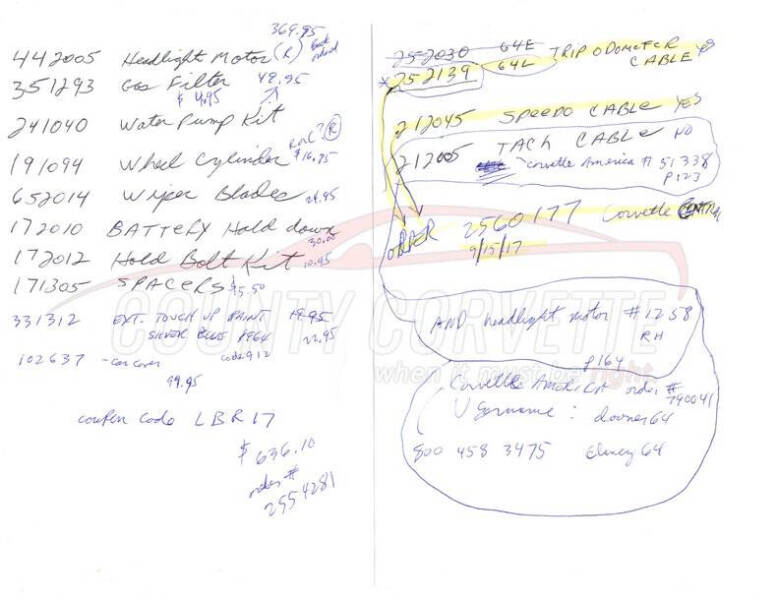 369.95
442005 Headlight Motor (R) Back ordered
351293 Gas Filter 49.95
$4.95
241040 Water Pump Kit
191094 Wheel Cylinder $16.75
652014 Wiper Blades 24.95
172010 BATTERY Hold down
30.00
172012 Hold Bolt Kit 10.95
171305 SPACERS $5.50
331312 EXT. TOUCH UP PAINT 19.95
SILVER BLUE 1964 22.95
102637 - Car cover code 912
99.95
coupon code LBR17
$636.10
order #
2554281
252030 64E TRIP ODOMETER
* 252139 64L CABLE YES
212045 SPEEDO CABLE YES
212005 TACH CABLE NO
Corvette America # 51338
P123
ORDER 2560177 Corvette CENTRAL
9/15/17
AND headlight motor #1258
RH
P164
Corvette America order #
790041
Username: downer64
800 458 3475
COUNTY CORVETTE
when it must be right